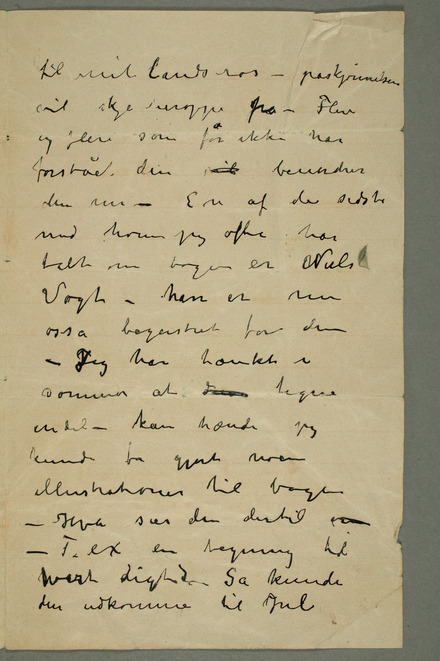 til mit Landsros – paskjønnelsen
vil skje deroppe fra – Flere
og flere som før ikke har
forståed den beundrer
den nu – En af de sidste
med hvem jeg ofte har
talt om bogen er Niels
Vogt – han er nu
osså begeistret for den
– Jeg har tænkt i
sommer at tegne
endel – kan hænde jeg
kunde få gjort noen
illustrationer til bogen
– Hva sier du dertil
– T. ex en tegning til
hvert digt Så kunde
den udkomme til Jul